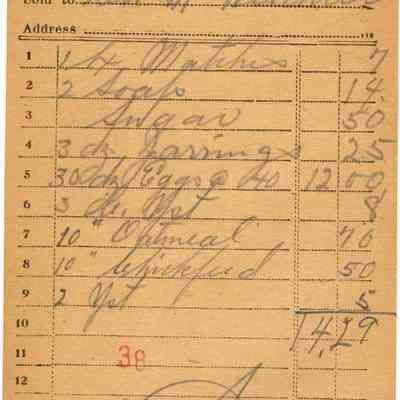 Sold to
Address
1 1 Matches 7
2 2 Soaps 14
3 Sugar 50
4 3 dz Jarrings 25
5 30 dz Eggs @ 40 12 00
6 3 8
7 10 " Oatmeal 70
8 10 " Chickfeed 50
9 2 Yst 5
10 14.29
11
38
12